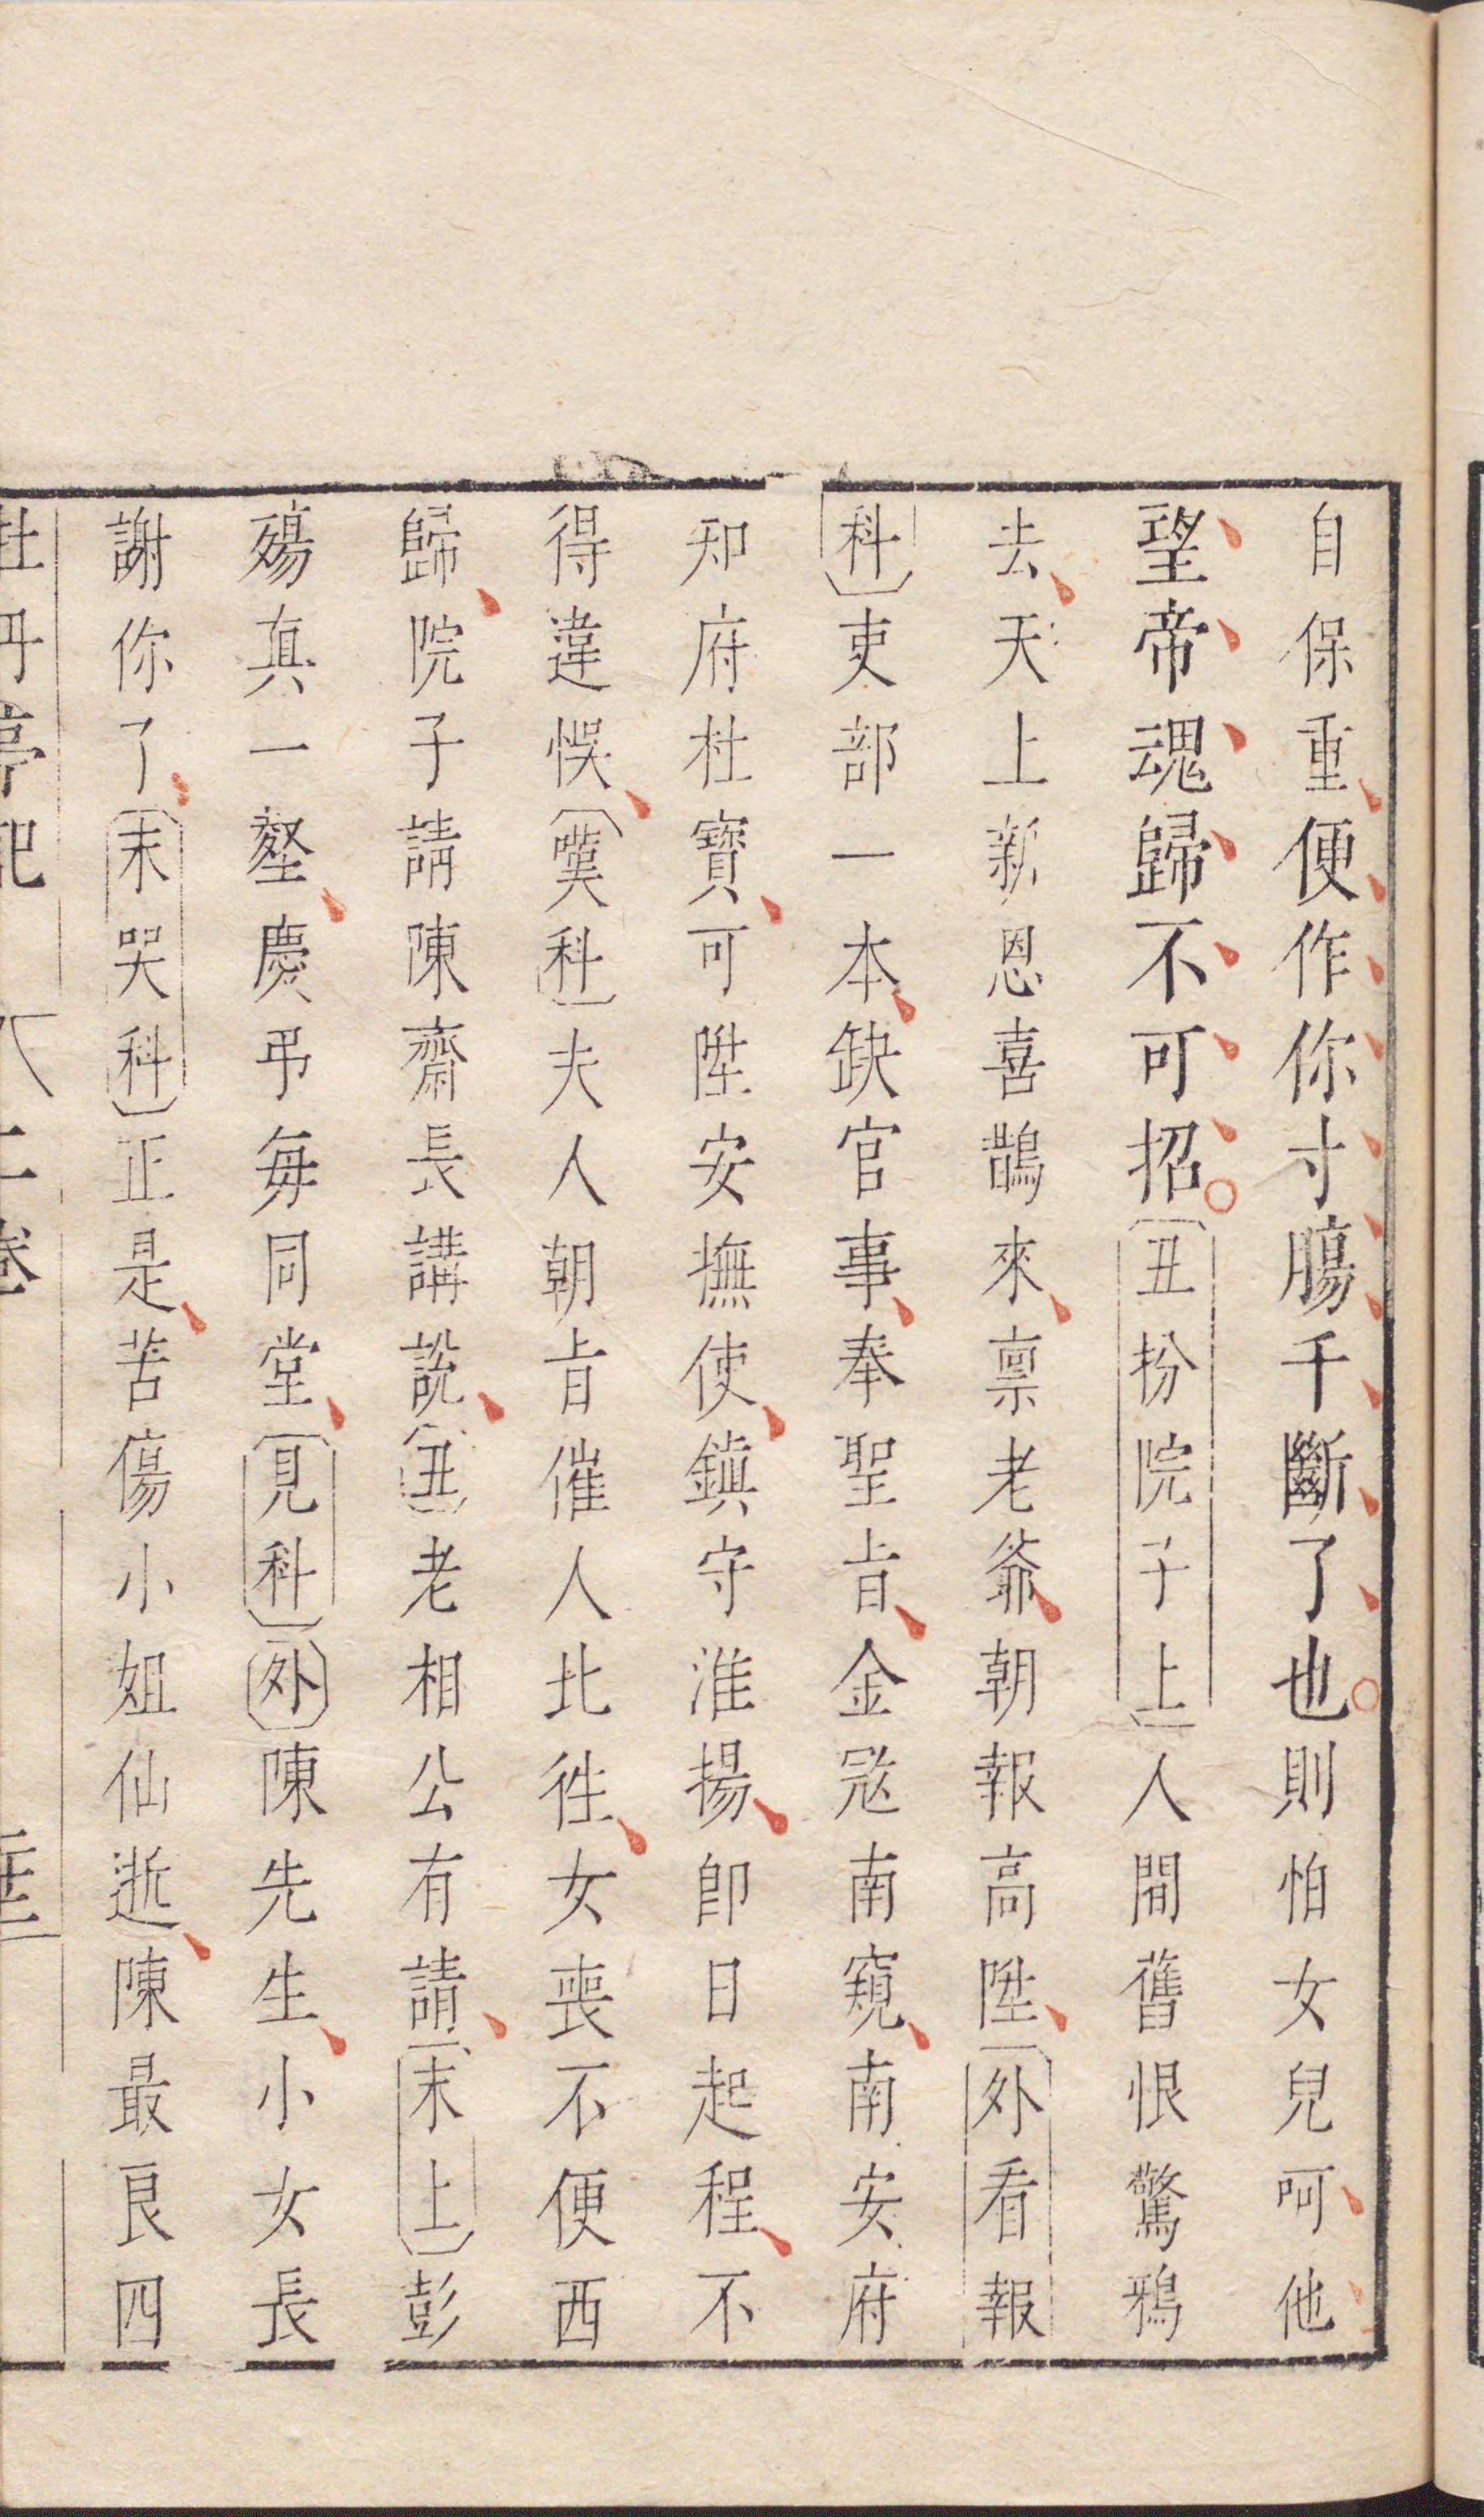 自保重便作你寸腸千斷了也則怕女兒呵他
望帝魂歸不可招〔丑扮院子上〕人間舊恨驚鴉
去天上新恩喜鵲來禀老爺朝報高陞〔外看報
科〕吏部一本缺官事奉聖旨金寇南窺南安府
知府杜寶可陞安撫使鎮守淮揚即日起程不
得違悞〔嘆科〕夫人朝旨催人北徃女喪不便西
歸院子請陳齋長講說〔丑〕老相公有請〔末上〕彭
殤真一壑慶弔每同堂〔見科〕〔外〕陳先生小女長
謝你了〔末哭科〕正是苦傷小姐仙逝陳最良四
牡丹亭記 二卷